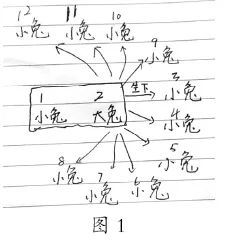 12 11 10
小兔 小兔 小兔
9
小兔
1 2 生下 3
小兔 大兔 小兔
4
小兔
5
小兔
8 7 6
小兔 小兔 小兔
图 1